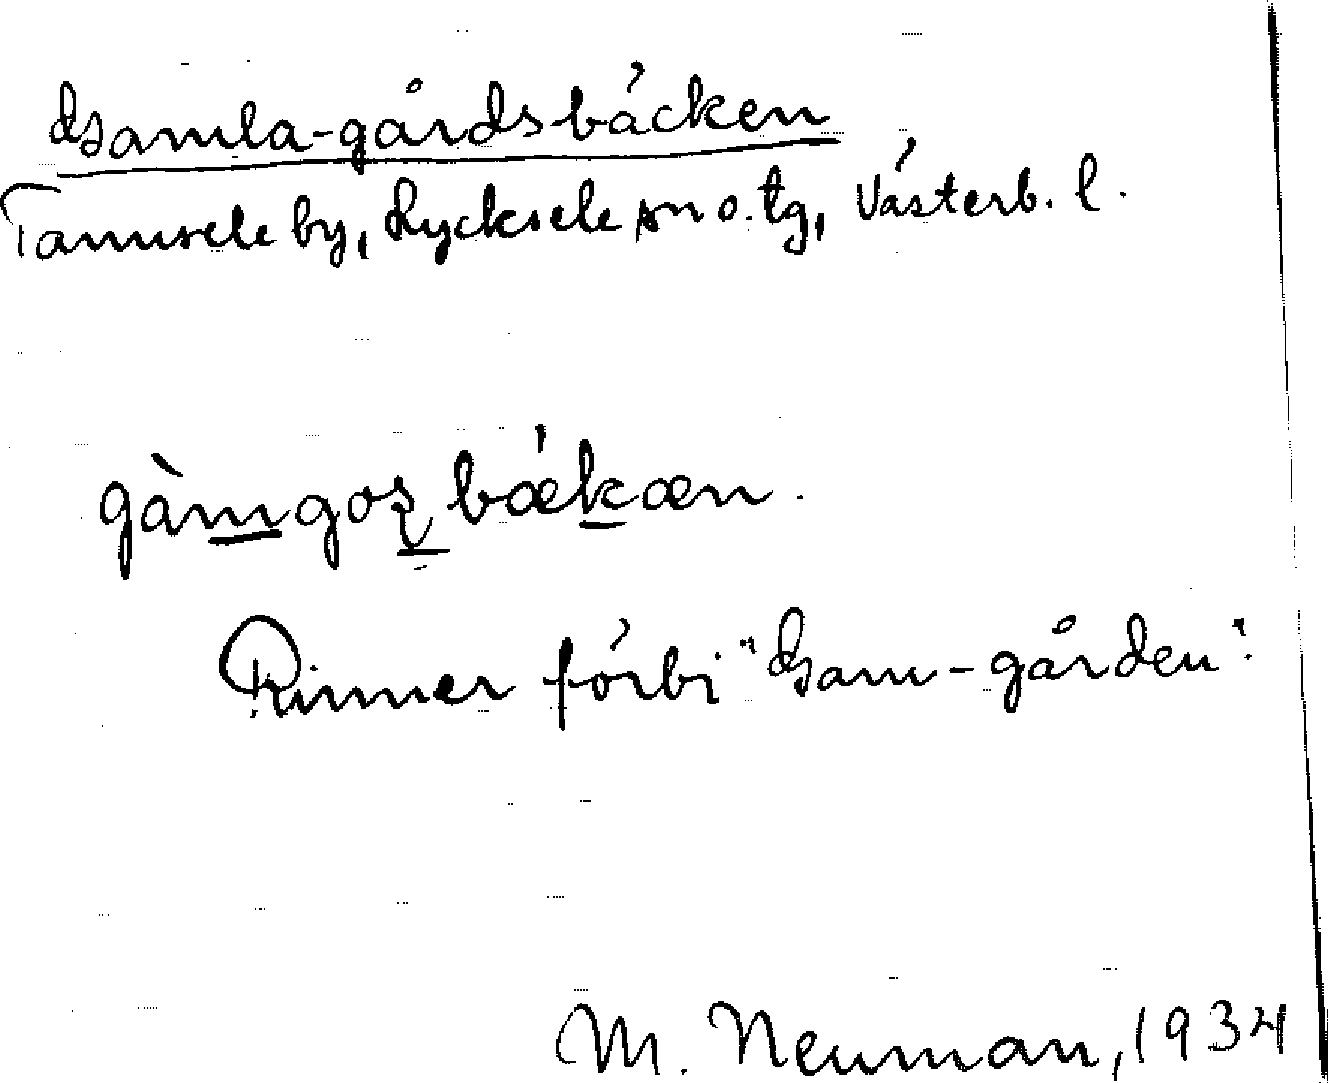 Gamla-gårdsbäcken
Tannsele by, Lycksele sn o. tg, Västerb. l.
gàmgoʂbǽkæn.
Rinner förbi "Gam-gården".
M. Neuman, 1934